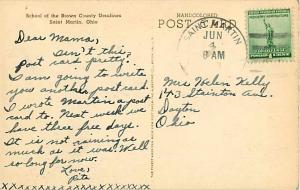 School of the Brown County Ursulines
Saint Martin, Ohio
HANDCOLORED
POST CARD
SAINT MARTIN
JUN
4
8 AM
Dear Mama,
Isn't this
post card pretty?
I am going to write
you another post card
I wrote Martin a post
card to. Next week we
have three free days.
It is not raining as
much as it was. Well
so long for now.
Love,
Rita
Mrs Helen Kelly
143 Stainton Ave.
Dayton
Ohio